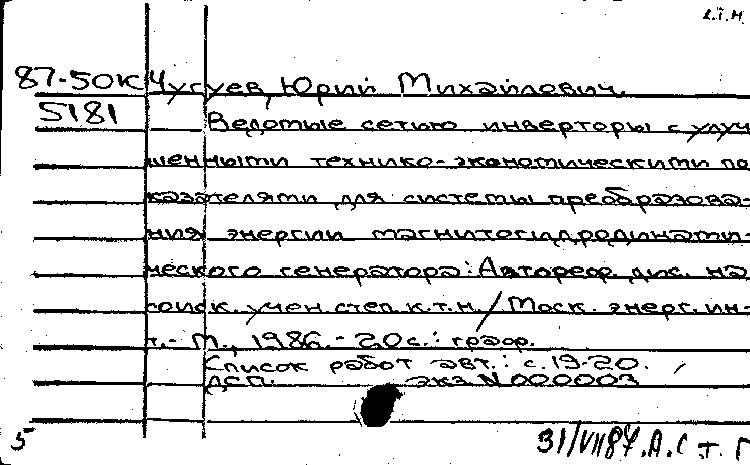 87-50К Чугуев, Юрий Михайлович.
5181
Ведомые сетью инверторы с улуч
шенными технико-экономическими по
казателями для системы преобразова-
ния энергии магнитогидродинами-
ческого генератора: Автореф. дис. на
соиск. учен. степ. к.т.н. / Моск. энерг. ин-
т.- М., 1986.- 20 с.: граф.
Список работ авт.: с. 19-20.
ДСП. экз. N 000003
5